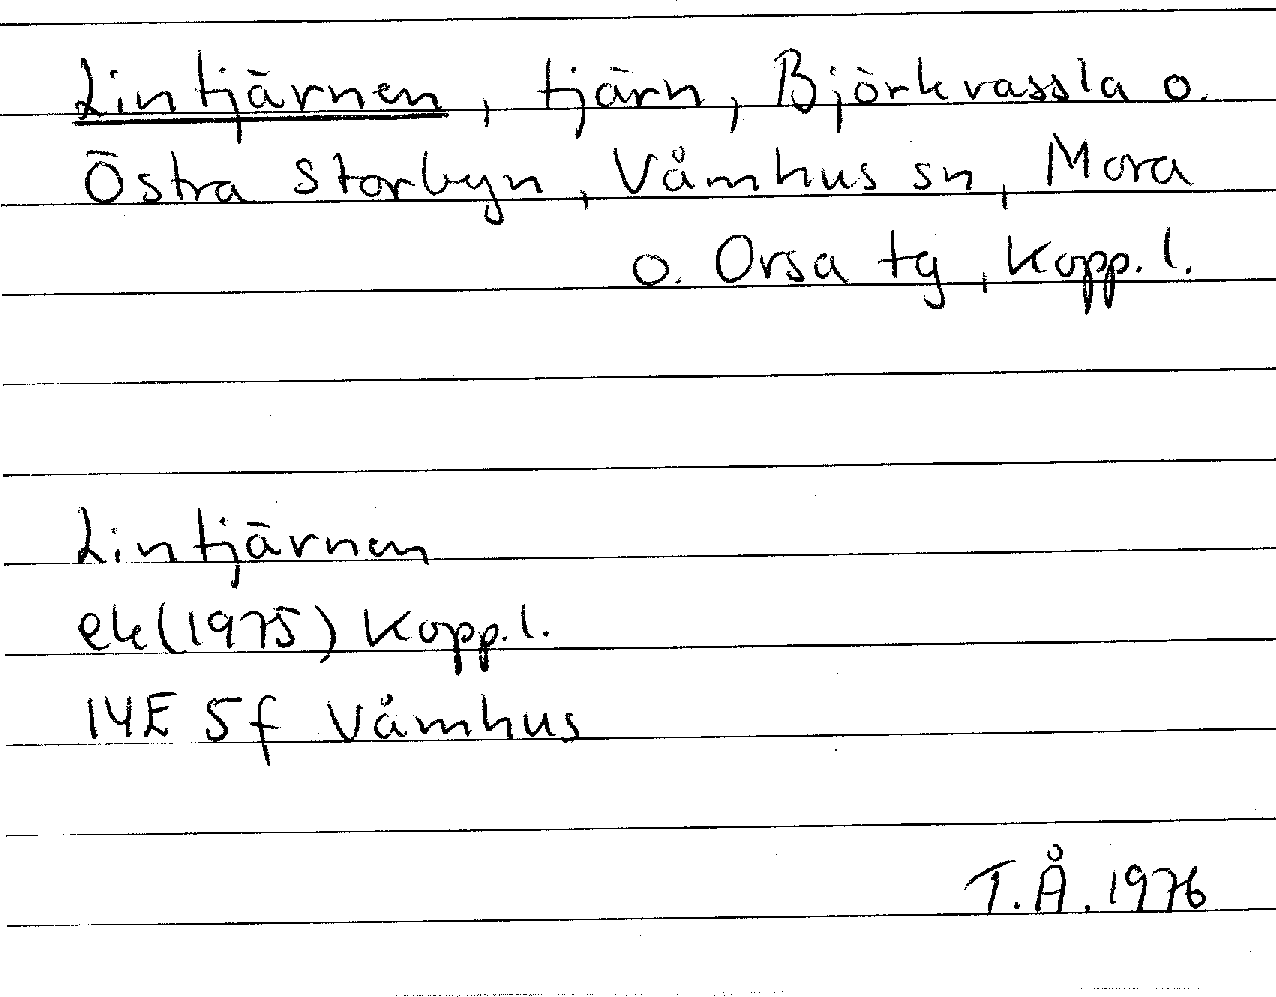 Lintjärnen, tjärn, Björkvassla o.
Östra Storbyn, Våmhus sn, Mora
o. Orsa tg, Kopp. l.
Lintjärnen
ek (1975) Kopp. l.
14E 5f Våmhus
T.Å. 1976